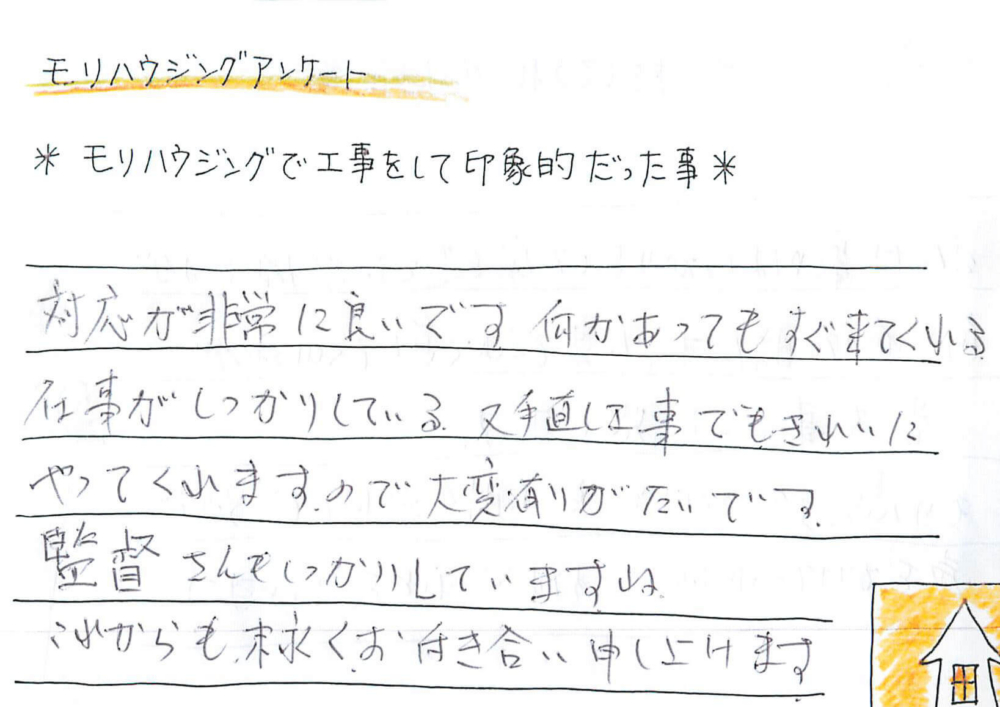 モリハウジングアンケート
* モリハウジングで工事をして印象的だった事 *
対応が非常に良いです。何かあってもすぐ来てくれる。
仕事がしっかりしている。又手直し工事でもきれいに
やってくれますので大変有りがたいです。
監督さんもしっかりしていますね。
これからも末永くお付き合い申し上げます。